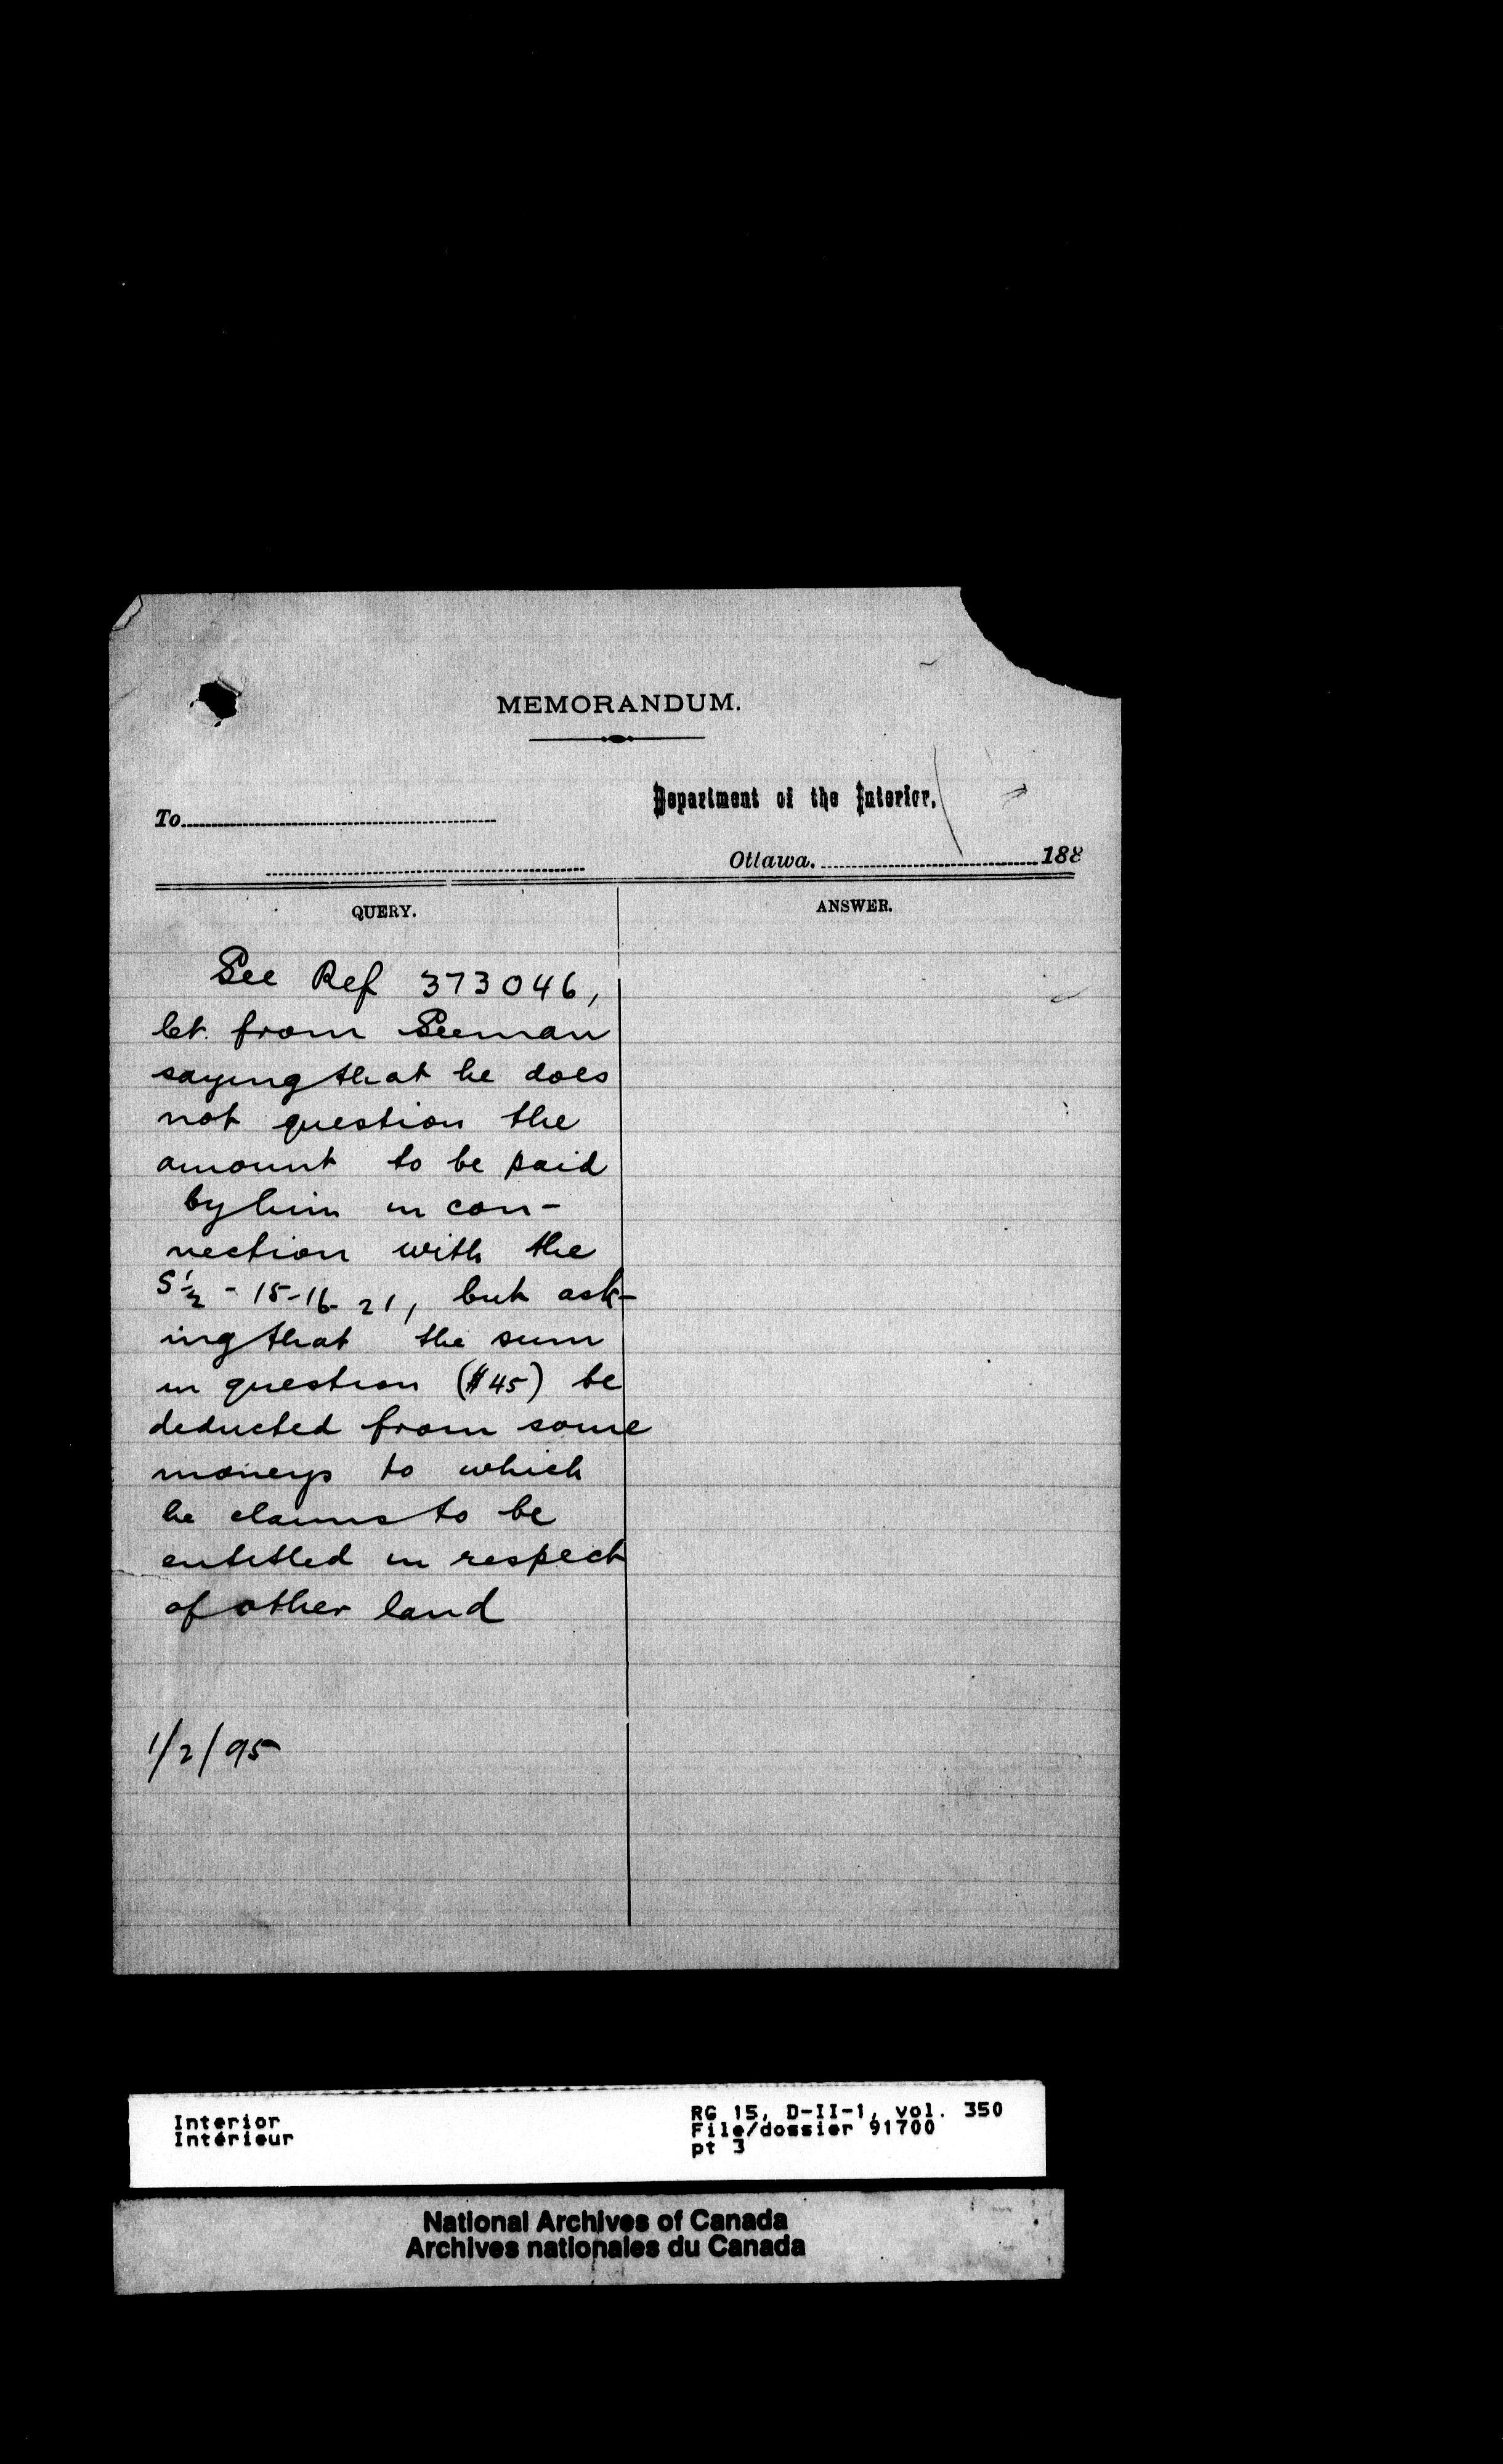 MEMORANDUM.
Department of the Interior.
To
Ottawa. 188
QUERY. ANSWER.
See Ref 373046,
let. from Seeman
saying that he does
not question the
amount to be paid
by him in con-
nection with the
S 1/2 - 15-16-21, but ask-
ing that the sum
in question ($45) be
deducted from some
moneys to which
he claims to be
entitled in respect
of other land
1/2/95
Interior
Intérieur
RG 15, D-II-1, vol. 350
File/dossier 91700
pt 3
National Archives of Canada
Archives nationales du Canada